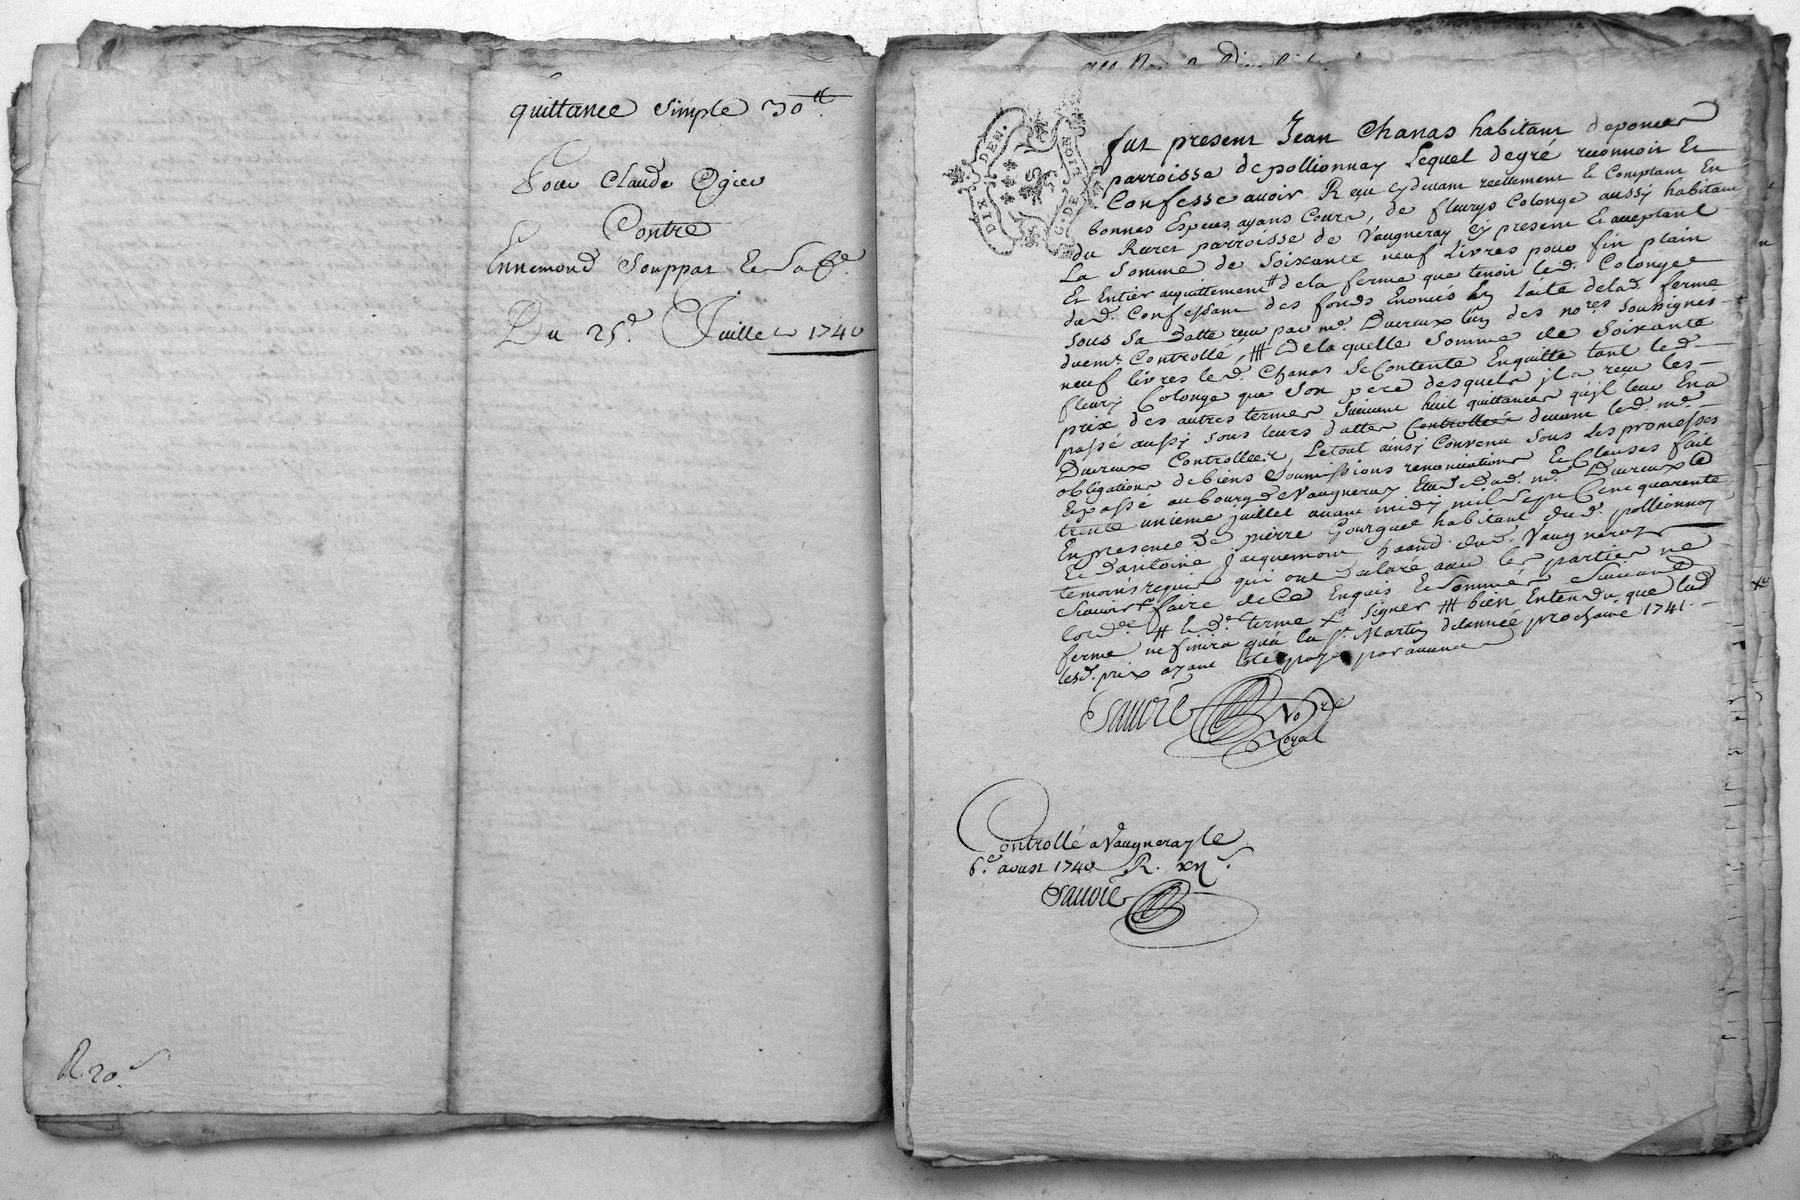 quittance simple 30ᵗᵗ.
Pour Claude Ogier
Contre
Ennemond Souppat & Sa fe.
Du 25e. Juillet 1740
R. 20.s
DIX DEN.
G. DE LION
fut present Jean Chanas habitant
parroisse de pollionnay Lequel de gré reconnoit Et
Confesse avoir Receu cydevant reellement & Comptant En
bonnes Especes ayans Cours, de fleury Colonge aussy habitant
du Raret parroisse de Vaugneray cy present Et acceptant
La Somme de Soixante neuf Livres pour fin plain
Et Entier acquittement # de la ferme que tenoit led. Colonge
dud. Confessant des fonds Enoncés En Lacte de lad. ferme
sous Sa datte receu par me. Ducreux L'un des nores soussignes
duemt Controllé, ## De la quelle Somme de Soixante
neuf livres led. Chanas Se Contente En quitte tant led.
fleury Colonge que Son pere desquels jl a receu les
prix des autres termes Suivant huit quittances qu'jl leur En a
passé aussy sous leurs dattes devant led. me.
Ducreux Controllées, Le tout ainsy Convenu Sous Les promesses
obligations de biens Soumissions renonciations & Clauses fait
& passé au bourg de Vaugneray Etude dud. me. Ducreux Le
trente unieme juillet avant midy mil Sept Cent quarente
En presence de pierre Gourguet habitant dud. pollionnay
Et d'antoine Jacquemont dud. Vaugneray
temoins requis qui ont declaré avec les parties ne
Scavoir faire de Ce Enquis & Sommés Suivant
lordce # & de. terme Signer ## bien Entendu que lad.
ferme ne finira qu'a la St. Martin de lannée prochaine 1741.
lesd. prix ayant été payé par avance
Sauvré Nore
Royal
Controllé a Vaugneray le
6e. aoust 1740 R. xijs.
Sauvré